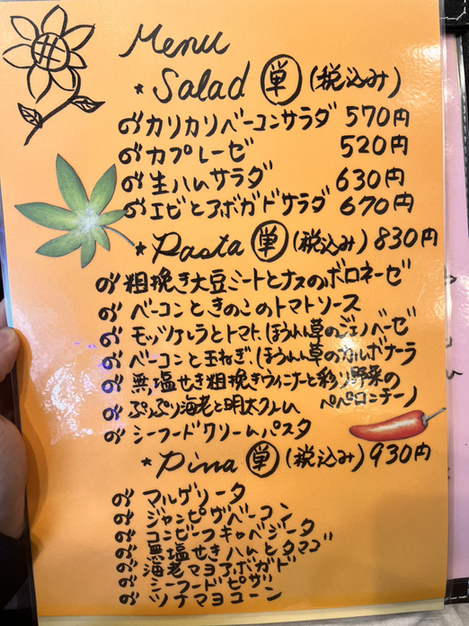 Menu
*Salad 単 (税込み)
カリカリベーコンサラダ 570円
カプレーゼ 520円
生ハムサラダ 630円
エビとアボガドサラダ 670円
*Pasta 単 (税込み) 830円
粗挽き大豆ミートとナスのボロネーゼ
ベーコンときのこのトマトソース
モッツァレラとトマト、ほうれん草のジェノベーゼ
ベーコンと玉ねぎ、ほうれん草のカルボナーラ
無塩せき粗挽きウィンナーと彩り野菜の
ペペロンチーノ
ぷりぷり海老と明太クリーム
シーフードクリームパスタ
*Pizza 単 (税込み) 930円
マルゲリータ
ジャンピザベーコン
コンビーフキャベジータ
無塩せきハムとタマゴ
海老マヨアボガド
シーフードピザ
ツナマヨコーン